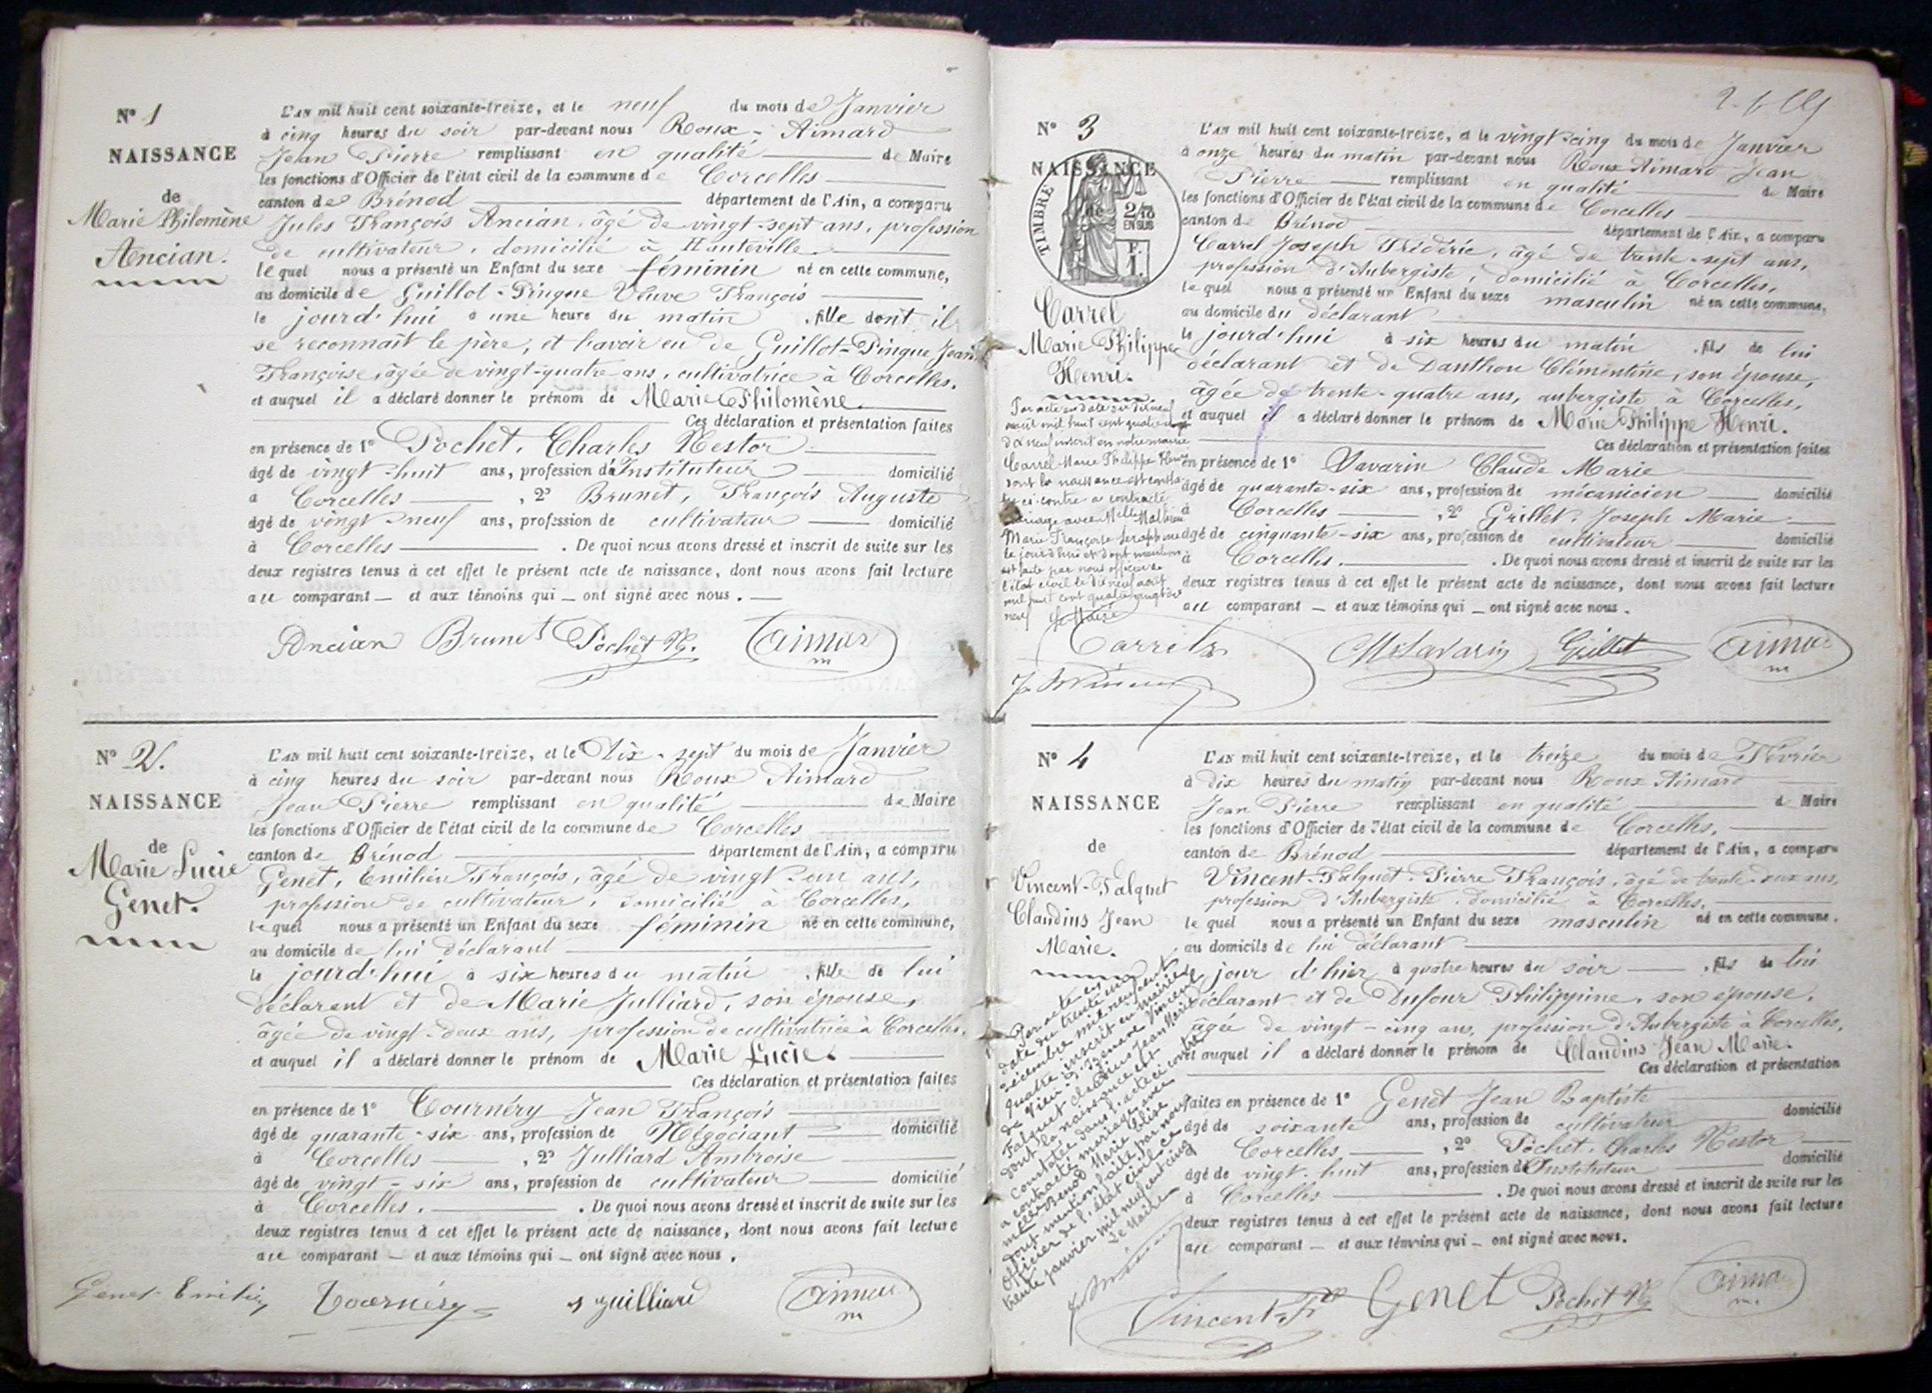 N° 1
NAISSANCE
de
Marie Philomène
Ancian.
L'AN mil huit cent soixante-treize, et le neuf du mois de Janvier
à cinq heures du soir par-devant nous Roux-Aimard
Jean Pierre remplissant en qualité de Maire
les fonctions d'Officier de l'état civil de la commune de Corcelles
canton de Brénod département de l'Ain, a comparu
Jules François Ancian, âgé de vingt-sept ans, profession
de cultivateur, domicilié à Hauteville
lequel nous a présenté un Enfant du sexe féminin né en cette commune,
au domicile de Guillot-Pingue Veuve François
le jourd'hui à une heure du matin, fille dont il
se reconnait le père, et l'avoir eu de Guillot-Pingue Jean
Françoise, âgée de vingt-quatre ans, cultivatrice à Corcelles,
et auquel il a déclaré donner le prénom de Marie Philomène
Ces déclaration et présentation faites
en présence de 1° Pochet, Charles Nestor
âgé de vingt-huit ans, profession d'Instituteur domicilié
à Corcelles, 2° Brunet, François Auguste
âgé de vingt-neuf ans, profession de cultivateur domicilié
à Corcelles. De quoi nous avons dressé et inscrit de suite sur les
deux registres tenus à cet effet le présent acte de naissance, dont nous avons fait lecture
au comparant — et aux témoins qui — ont signé avec nous. —
Ancian Brunet Pochet Aimar
N° 2.
NAISSANCE
de
Marie Lucie
Genet.
L'AN mil huit cent soixante-treize, et le Dix-sept du mois de Janvier
à cinq heures du soir par-devant nous Roux Aimard
Jean Pierre remplissant en qualité de Maire
les fonctions d'Officier de l'état civil de la commune de Corcelles
canton de Brénod département de l'Ain, a comparu
Genet, Emilien François, âgé de vingt-un ans,
profession de cultivateur, domicilié à Corcelles,
lequel nous a présenté un Enfant du sexe féminin né en cette commune,
au domicile de lui déclarant
le jourd'hui à six heures du matin, fille de lui
déclarent et de Marie Julliard, son épouse,
âgée de vingt-deux ans, profession de cultivatrice à Corcelles,
et auquel il a déclaré donner le prénom de Marie Lucie.
Ces déclaration et présentation faites
en présence de 1° Tournéry Jean François
âgé de quarante-six ans, profession de Négociant domicilié
à Corcelles, 2° Julliard Ambroise
âgé de vingt-six ans, profession de cultivateur domicilié
à Corcelles. De quoi nous avons dressé et inscrit de suite sur les
deux registres tenus à cet effet le présent acte de naissance, dont nous avons fait lecture
au comparant — et aux témoins qui — ont signé avec nous.
Genet Emilien Tournéry Juilliard Aimar
N° 3
NAISSANCE
de
TIMBRE
2/10 EN SUS
F. 1.
Carrel
Marie Philippe
Henri.
Par acte en date du dix neuf
avril mil huit cent quatre vingt
dix neuf inscrit en notre mairie
Carrel Marie Philippe Henri
dont la naissance est constatée
ci-contre a contracté
mariage avec Melle Mathieu
Marie Françoise Séraphine
le jourd'hui et dont mention
est faite par nous officier de
l'état civil le dix neuf avril
mil huit cent quatre vingt dix
neuf Le Maire
L'AN mil huit cent soixante-treize, et le vingt-cinq du mois de Janvier
à onze heures du matin par-devant nous Roux Aimard Jean
Pierre remplissant en qualité de Maire
les fonctions d'Officier de l'état civil de la commune de Corcelles
canton de Brénod département de l'Ain, a comparu
Carrel Joseph Frédéric, âgé de trente-sept ans,
profession d'Aubergiste, domicilié à Corcelles,
lequel nous a présenté un Enfant du sexe masculin né en cette commune,
au domicile du déclarant
le jourd'hui à six heures du matin, fils de lui
déclarant et de Danthon Clémentine, son épouse,
âgée de trente-quatre ans, aubergiste à Corcelles,
et auquel il a déclaré donner le prénom de Marie Philippe Henri.
Ces déclaration et présentation faites
en présence de 1° Savarin Claude Marie
âgé de quarante-six ans, profession de mécanicien domicilié
à Corcelles, 2° Grillet, Joseph Marie
âgé de cinquante-six ans, profession de cultivateur domicilié
à Corcelles. De quoi nous avons dressé et inscrit de suite sur les
deux registres tenus à cet effet le présent acte de naissance, dont nous avons fait lecture
au comparant — et aux témoins qui — ont signé avec nous.
Carrel Savarin Grillet Aimar
N° 4
NAISSANCE
de
Vincent-Falquet
Claudius Jean
Marie.
Par acte en
date du trente un
décembre mil neuf cent
quatre inscrit en mairie
de Vieu d'Izenave Vincent
Falquet Claudius Jean Marie
dont la naissance est
constatée dans l'acte ci contre
a contracté mariage avec
melle Brenod Marie Elise
dont mention faite par nous
Officier de l'état civil ce
trente janvier mil neuf cent cinq
Le Maire
L'AN mil huit cent soixante-treize, et le treize du mois de Février
à dix heures du matin par-devant nous Roux Aimard
Jean Pierre remplissant en qualité de Maire
les fonctions d'Officier de l'état civil de la commune de Corcelles,
canton de Brénod département de l'Ain, a comparu
Vincent-Falquet Pierre François, âgé de trente-deux ans,
profession d'Aubergiste, domicilié à Corcelles,
lequel nous a présenté un Enfant du sexe masculin né en cette commune,
au domicile de lui déclarant
le jour d'hier à quatre heures du soir, fils de lui
déclarant et de Dufour Philippine, son épouse,
âgée de vingt-cinq ans, profession d'Aubergiste à Corcelles,
et auquel il a déclaré donner le prénom de Claudius Jean Marie.
Ces déclaration et présentation
faites en présence de 1° Genet Jean Baptiste
âgé de soixante ans, profession de cultivateur domicilié
Corcelles, 2° Pochet Charles Nestor
âgé de vingt-huit ans, profession d'Instituteur domicilié
à Corcelles. De quoi nous avons dressé et inscrit de suite sur les
deux registres tenus à cet effet le présent acte de naissance, dont nous avons fait lecture
au comparant — et aux témoins qui — ont signé avec nous.
Vincent-F Genet Pochet Aimar